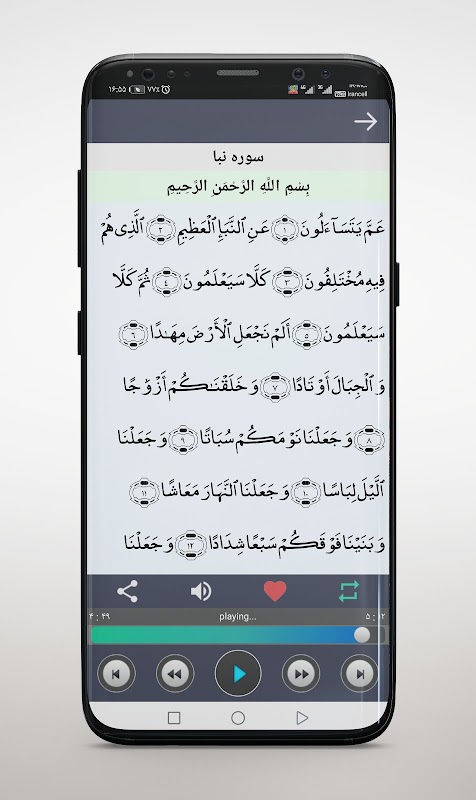 ۱۶:۵۵ ۷۷٪
Irancell
سوره نبا
بِسْمِ اللَّهِ الرَّحْمَنِ الرَّحِيمِ
عَمَّ يَتَسَآءَلُونَ ۱ عَنِ النَّبَإِ الْعَظِيمِ ۲ الَّذِى هُمْ
فِيهِ مُخْتَلِفُونَ ۳ كَلَّا سَيَعْلَمُونَ ۴ ثُمَّ كَلَّا
سَيَعْلَمُونَ ۵ أَلَمْ نَجْعَلِ الْأَرْضَ مِهَٰدًا ۶
وَ الْجِبَالَ أَوْتَادًا ۷ وَ خَلَقْنَٰكُمْ أَزْوَٰجًا
۸ وَ جَعَلْنَا نَوْمَكُمْ سُبَاتًا ۹ وَ جَعَلْنَا
الَّيْلَ لِبَاسًا ۱۰ وَ جَعَلْنَا النَّهَارَ مَعَاشًا ۱۱
وَ بَنَيْنَا فَوْقَكُمْ سَبْعًا شِدَادًا ۱۲ وَ جَعَلْنَا
۴ : ۴۹ playing... ۵ : ۱۲